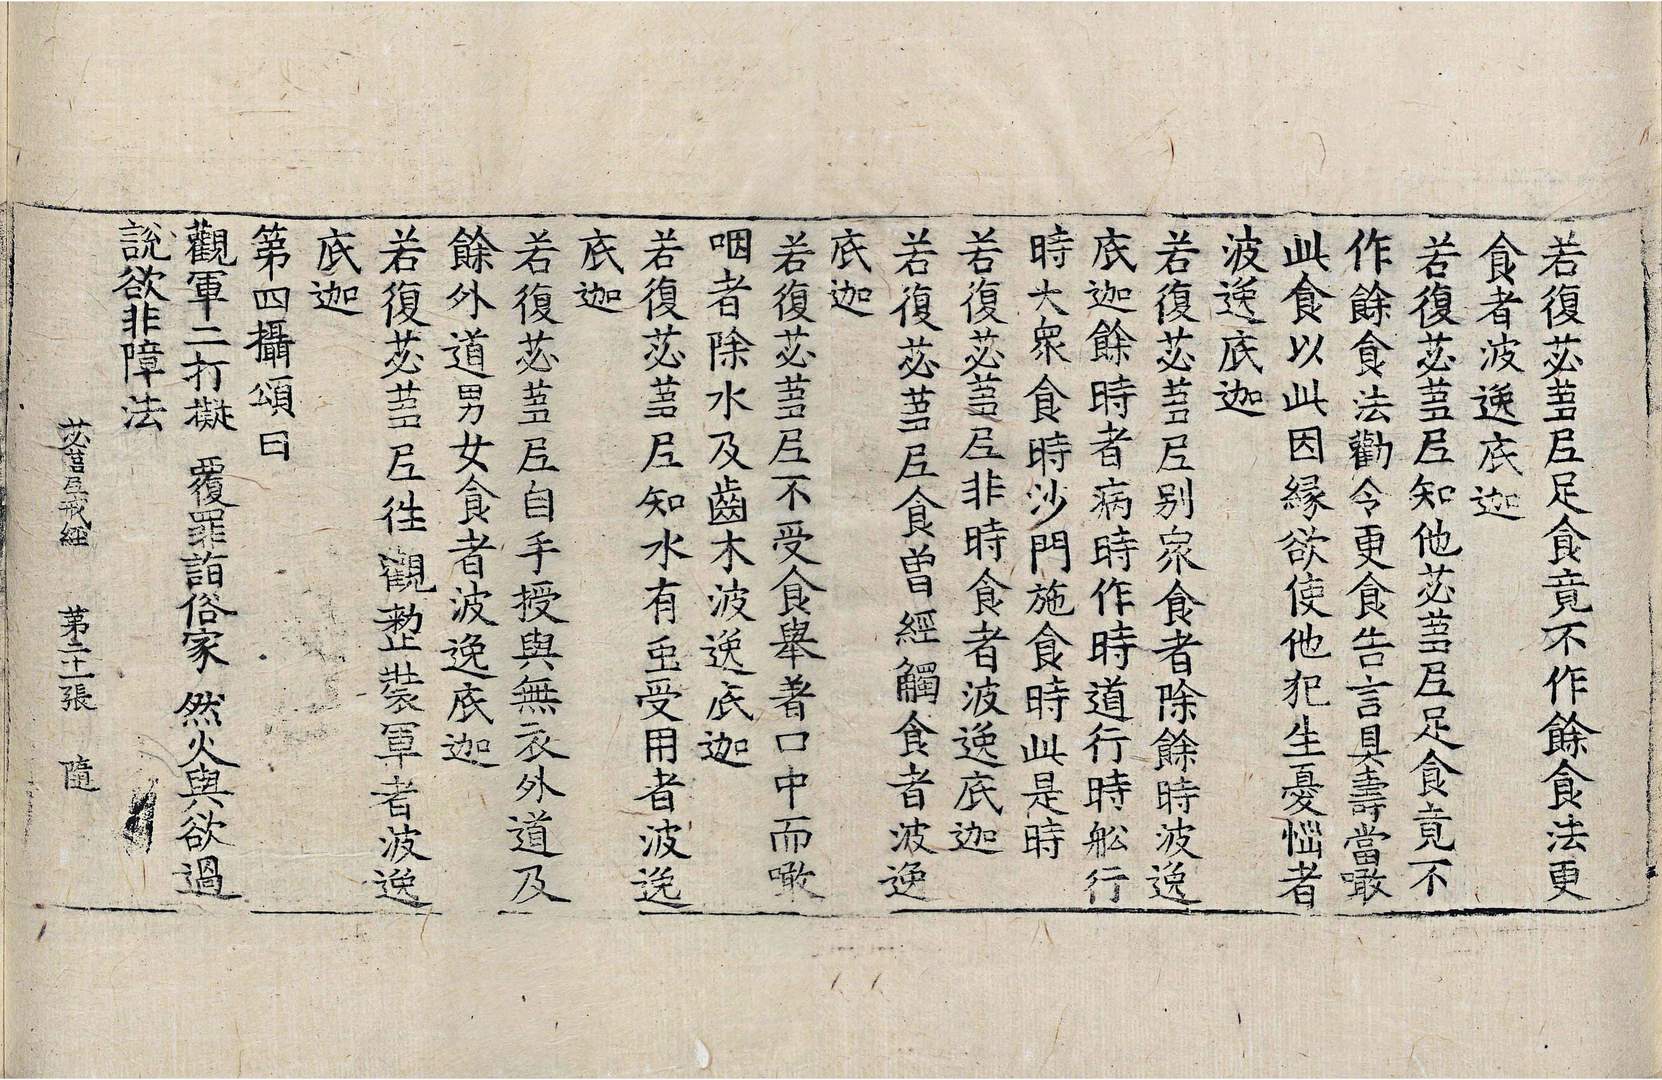 若復苾蒭尼足食竟不作餘食法更
食者波逸底迦
若復苾蒭尼知他苾蒭尼足食竟不
作餘食法勸令更食告言具壽當噉
此食以此因緣欲使他犯生憂惱者
波逸底迦
若復苾蒭尼別眾食者除餘時波逸
底迦餘時者病時作時道行時舩行
時大眾食時沙門施食時此是時
若復苾蒭尼非時食者波逸底迦
若復苾蒭尼食曾經觸食者波逸
底迦
若復苾蒭尼不受食舉著口中而噉
咽者除水及齒木波逸底迦
若復苾蒭尼知水有虫受用者波逸
底迦
若復苾蒭尼自手授與無衣外道及
餘外道男女食者波逸底迦
若復苾蒭尼往觀整裝軍者波逸
底迦
第四攝頌曰
觀軍二打擬 覆罪詣俗家 然火與欲過
說欲非障法
苾蒭尼戒經 第二十一張 隨